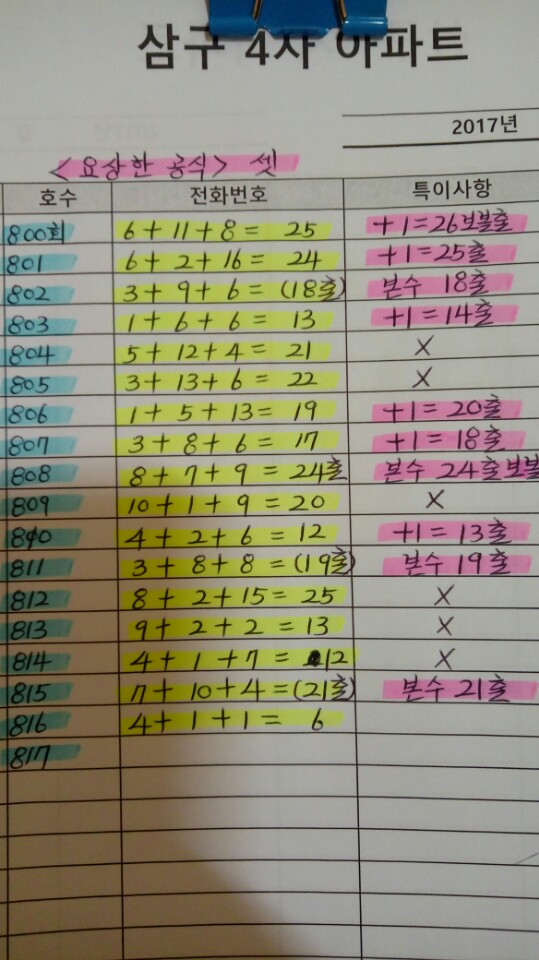 삼구 4차 아파트
2017년
<요상한 공식> 셋
호수 전화번호 특이사항
800회 6+11+8= 25 +1=26보볼출
801 6+2+16= 24 +1=25출
802 3+9+6=(18출) 본수 18출
803 1+6+6= 13 +1=14출
804 5+12+4= 21 X
805 3+13+6= 22 X
806 1+5+13= 19 +1=20출
807 3+8+6= 17 +1=18출
808 8+7+9=24출 본수 24출보볼
809 10+1+9=20 X
810 4+2+6= 12 +1=13출
811 3+8+8=(19출) 본수 19출
812 8+2+15=25 X
813 9+2+2=13 X
814 4+1+7= 12 X
815 7+10+4=(21출) 본수 21출
816 4+1+1= 6
817